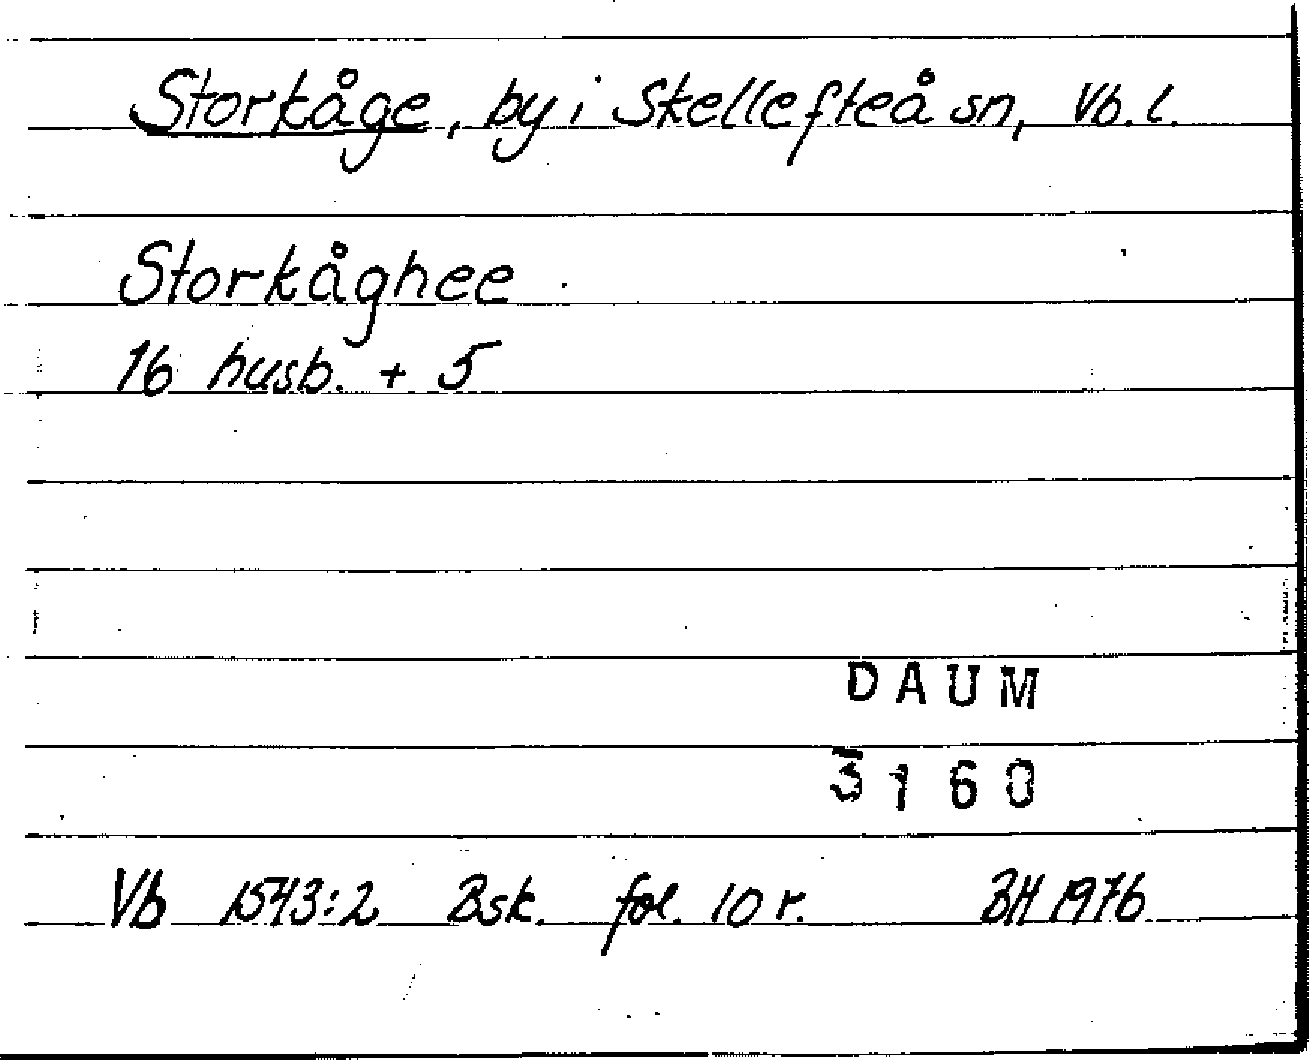 Storkåge, by i Skellefteå sn, Vb. l.
Storkåghee
16 husb. + 5
DAUM
3160
Vb 1543:2 Bsk. fol. 10 r. BH 1976